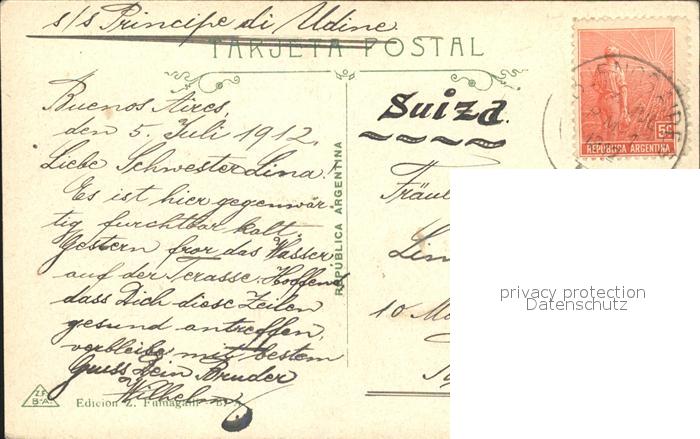 s/s Principe di Udine
TARJETA POSTAL
Buenos Aires,
den 5. Juli 1912.
Liebe Schwester Lina!
Es ist hier gegenwär-
tig furchtbar kalt.
Gestern fror das Wasser
auf der Terasse. Hoffend
dass Dich diese Zeilen
gesund antreffen,
verbleibe mit bestem
Gruss Dein Bruder
Wilhelm
REPÚBLICA ARGENTINA
Suiza.
Fräul
Lin
10 M
5c
REPUBLICA ARGENTINA
privacy protection
Datenschutz
Z.F.
B-A.
Edicion Z. Fumagalli